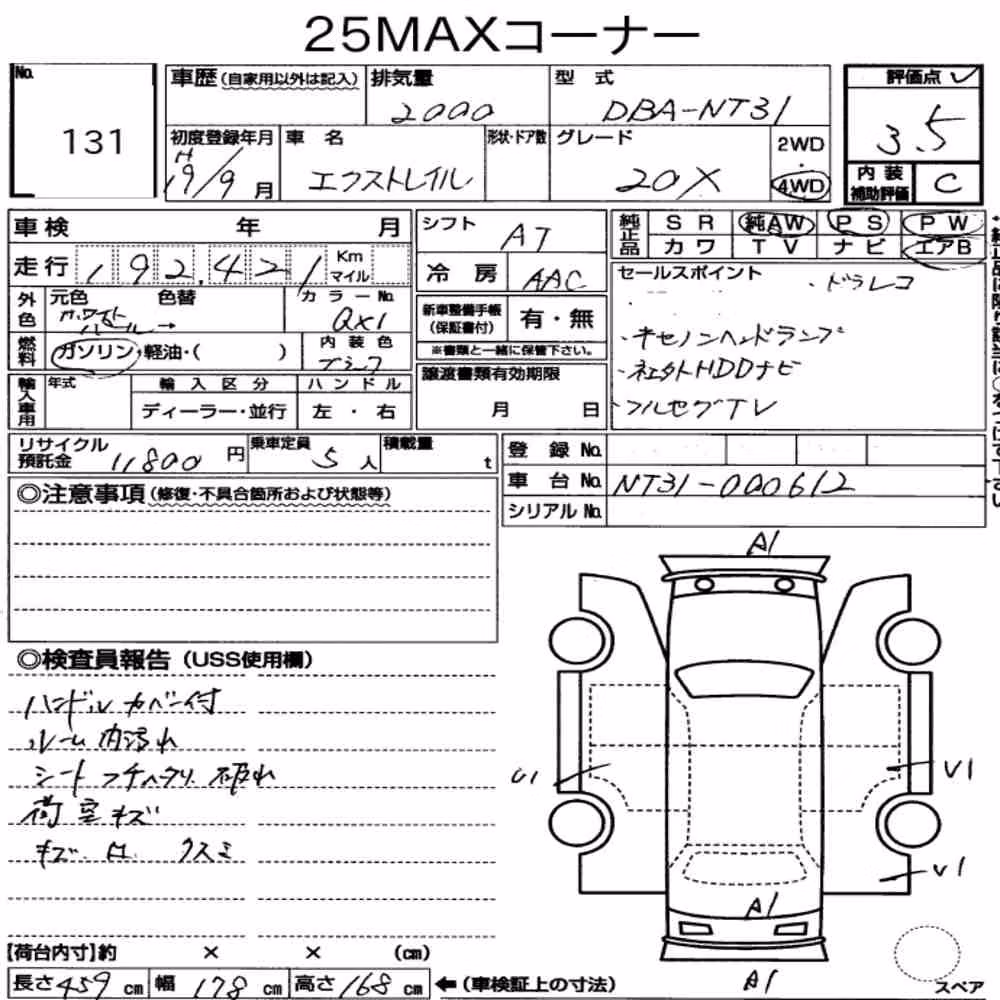 25MAXコーナー
No. 131
車歴(自家用以外は記入) 排気量 2000 型式 DBA-NT31 評価点 3.5
初度登録年月 H19/9月 車名 エクストレイル 形状・ドア数 グレード 20X 2WD・4WD 内装補助評価 C
車検 年 月
走行 192,421 Km マイル
シフト AT
冷房 AAC
純正品 SR 純AW PS PW
カワ TV ナビ エアB
外色 元色 ホワイトパール→ 色替 カラーNo. QX1
燃料 ガソリン・軽油・( ) 内装色
新車整備手帳(保証書付) 有・無
※書類と一緒に保管下さい。
セールスポイント ・ドラレコ
・キセノンヘッドランプ
・社外HDDナビ
・フルセグTV
輸入車用 年式 輸入区分 ハンドル
ディーラー・並行 左・右
譲渡書類有効期限
月 日
リサイクル預託金 11,800円 乗車定員 5人 積載量 t
登録No.
車台No. NT31-000612
シリアルNo.
◎注意事項(修復・不具合箇所および状態等)
◎検査員報告(USS使用欄)
ハンドルカバー付
ルーム内汚れ
シート フチヘタリ 破れ
荷室キズ
キズ、凹、クスミ
A1
U1
V1
V1
A1
A1
【荷台内寸】約 × × (cm)
長さ 459 cm 幅 178 cm 高さ 168 cm ←(車検証上の寸法)
スペア